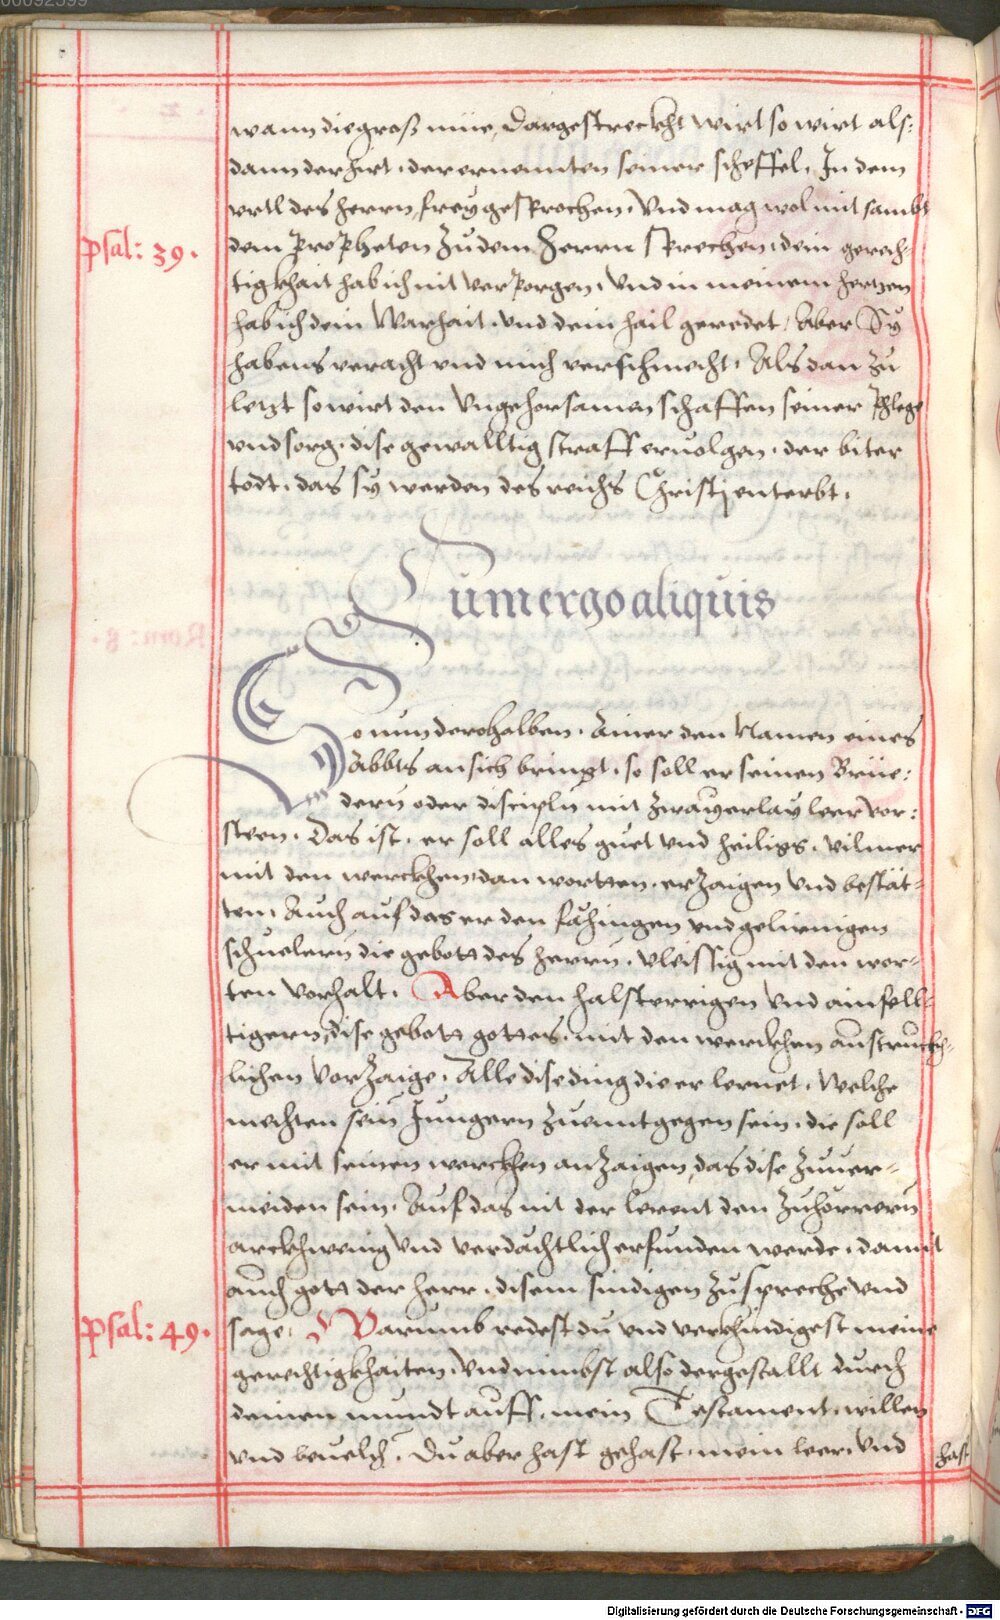 wann die groß müe, dargestreckht wirt so wirt als-
dann der hirt, der ernennten seiner scheffel, In dem
vrtl des herrn, frey gesprochen, Vnd mag wol mit sambt
Psal: 39.
dem Propheten zu dem Herrn sprechen, dein gerech-
tigkhait hab ich nit verporgen, Vnd in meinem hertzen
hab ich dein Warhait, vnd dein hail geredet, Aber Sy
habens veracht vnd mich verschmecht, Als dan zu
letzt so wirt den Vngehorsamen schaffen seiner Phleg
vnd sorg, dise gewalltig straff ervolgen, der biter
todt, das sy werden des reichs Christj enterbt.
Cum ergo aliquis
So nun derohalben, Ainer den Namen eines
Abbts an sich bringt, so soll er seinen Brüe:
dern oder discipln mit zwayerlay leer vor:
steen, Das ist, er soll alles guet vnd heiligs, vilmer
mit den werckhen, dan wortten, erzaigen vnd bestät-
ten, Auch auf das er den fähingen vnd gelirnigen
schuelern die gebott des herrn, vleissig mit den wor-
ten vorhalt, Aber den halsterrigen vnd ainfell-
tigern, dise gebott gottes, mit den werckhen austruckh-
lichen vorzaige, Alle dise ding die er lernet, Welche
mechten sein Jungern zu enntgegen sein, die soll
er mit seinen werckhen anzaigen, das dise zuuer-
meiden sein, Auf das nit der lerent den zuhörrern
arckhwenig vnd verdächtlich erfunden werde, damit
auch gott der herr, disem sindigen zuspreche vnd
Psal: 49.
sage, Warumb redest du vnd verkhündigest meine
gerechtigkhaiten, vnd nimbst also dergestallt durch
deinen mundt auff, mein Testament, willen
vnd beuelch, Du aber hast gehast, mein leer, Vnd
hast
Digitalisierung gefördert durch die Deutsche Forschungsgemeinschaft - DFG